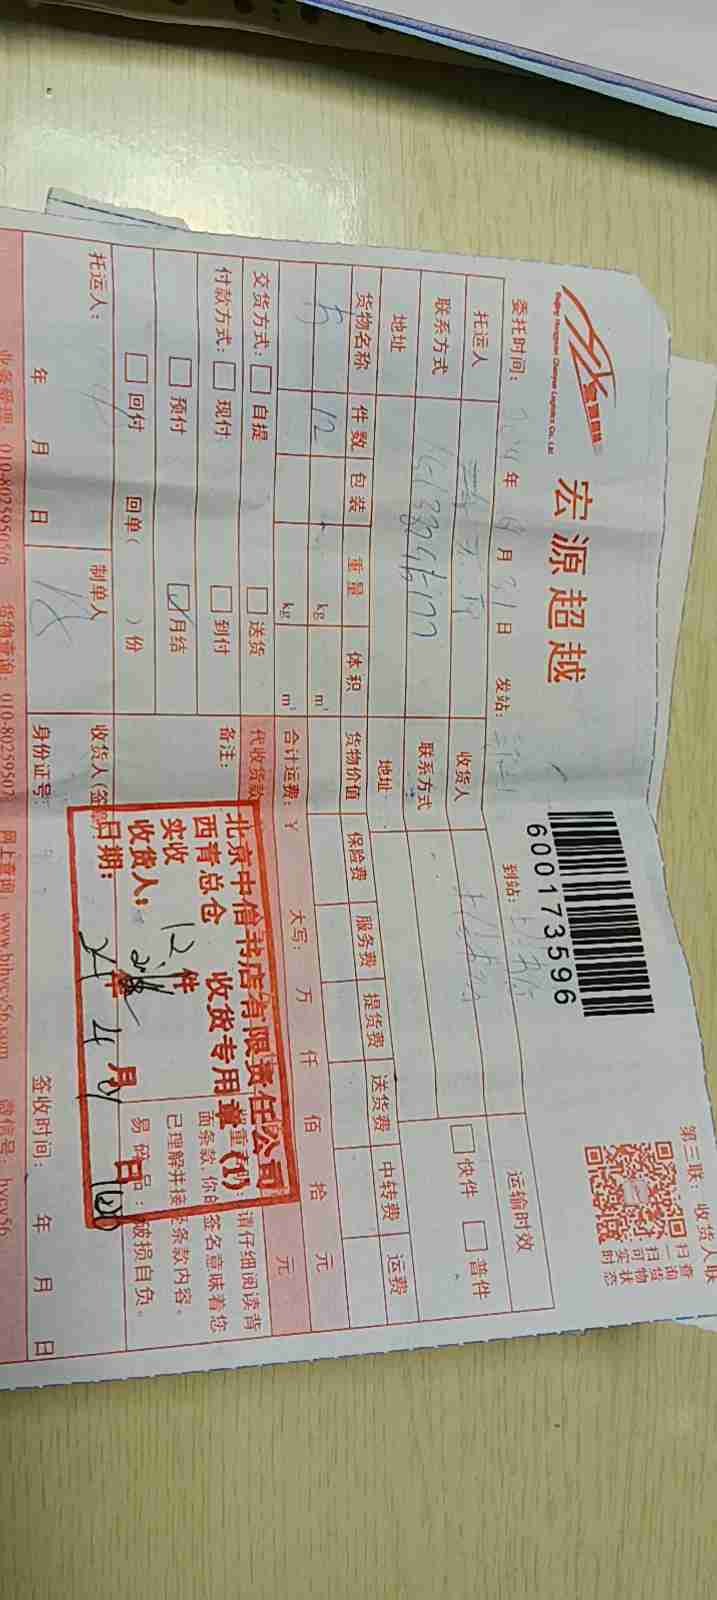 宏源超越
Beijing Hongyuan Chaoyue Logistics Co., Ltd.
600173596
第三联：收货人联
扫一扫 可实时
查询货物状态
委托时间： 年 月 31 日 发站： 到站：
托运人 收货人 运输时效
联系方式 联系方式 快件 普件
地址 地址
货物名称 件数 包装 重量 体积 货物价值 保险费 服务费 提货费 送货费 中转费 运费
12 kg m³
kg m³ 合计运费：￥ 大写： 万 仟 佰 拾 元
交货方式： 自提 送货 代收货款 元
付款方式： 现付 到付 备注：
预付 月结
回付 回单（ ）份
请仔细阅读背
面条款，你的签名意味着您
已理解并接受条款内容。
易碎品：破损自负。
北京中信书店有限责任公司
西青总仓 收货专用章(1)
实收 12 件
收货人：
日期： 年 4 月 日
托运人： 制单人 收货人(签
身份证号：
年 月 日 签收时间： 年 月 日
业务受理：010-80259506/6 货物查询：010-80259507 网上查询：www.bjhycy56.com 微信号：hycy56